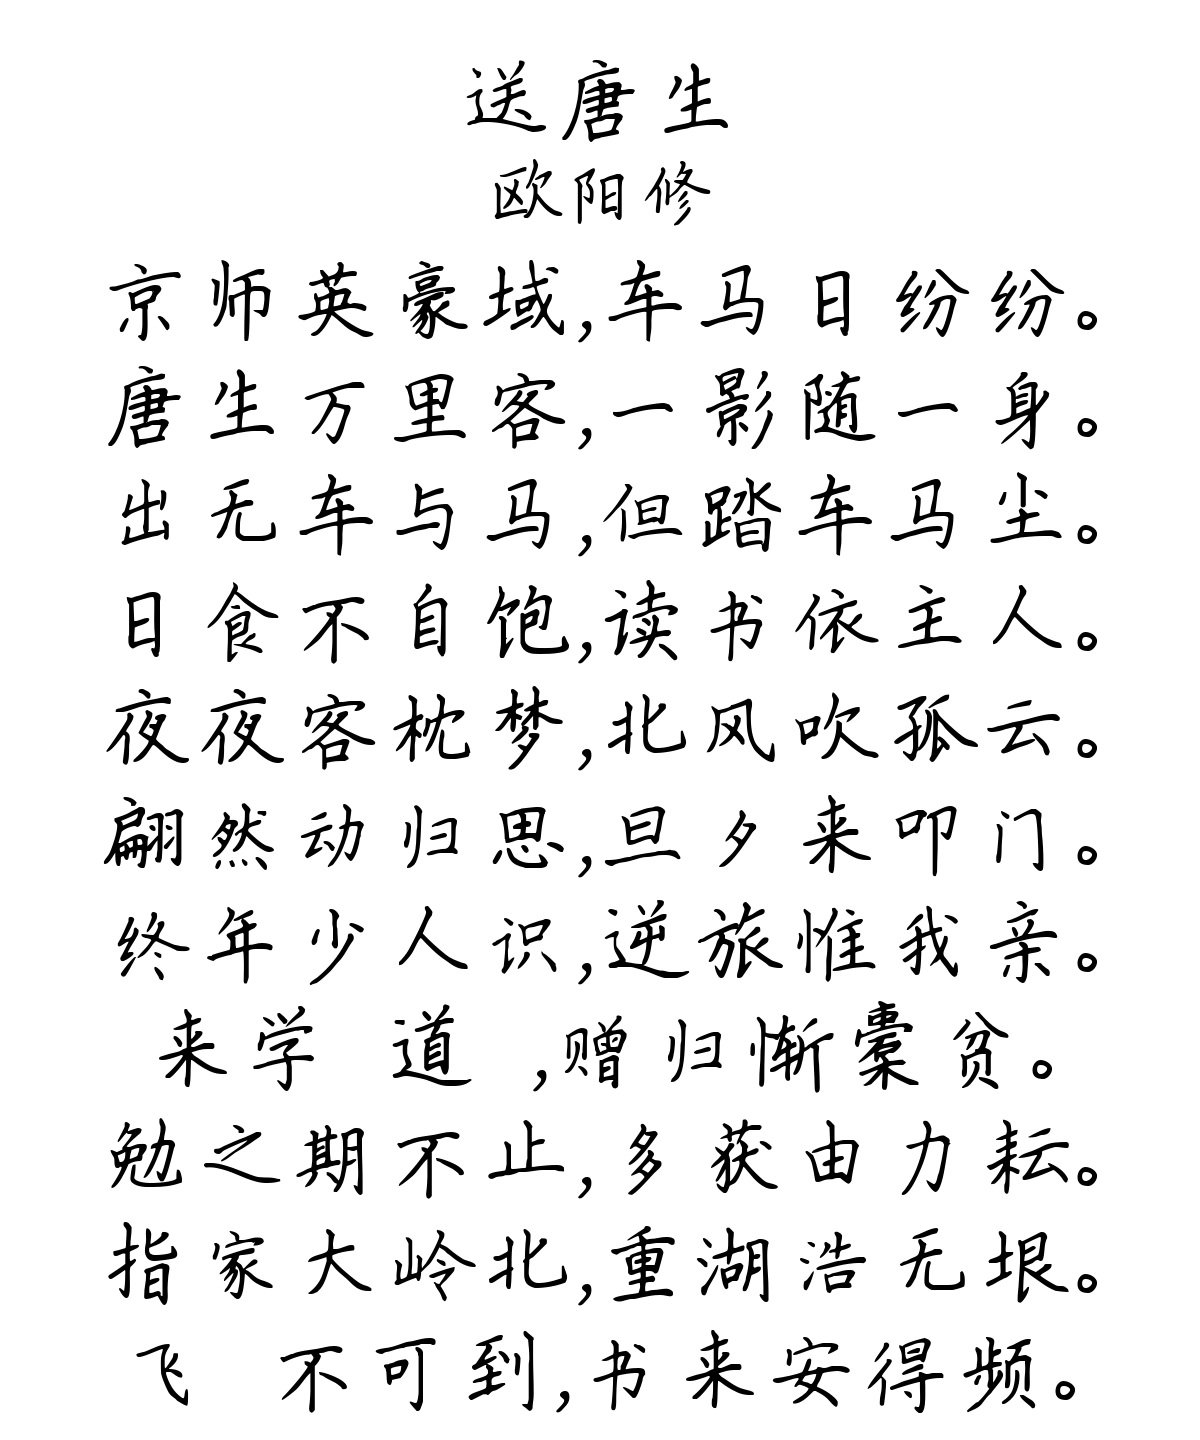 送唐生
欧阳修
京师英豪域,车马日纷纷。
唐生万里客,一影随一身。
出无车与马,但踏车马尘。
日食不自饱,读书依主人。
夜夜客枕梦,北风吹孤云。
翩然动归思,旦夕来叩门。
终年少人识,逆旅惟我亲。
来学 道 ,赠归惭橐贫。
勉之期不止,多获由力耘。
指家大岭北,重湖浩无垠。
飞 不可到,书来安得频。